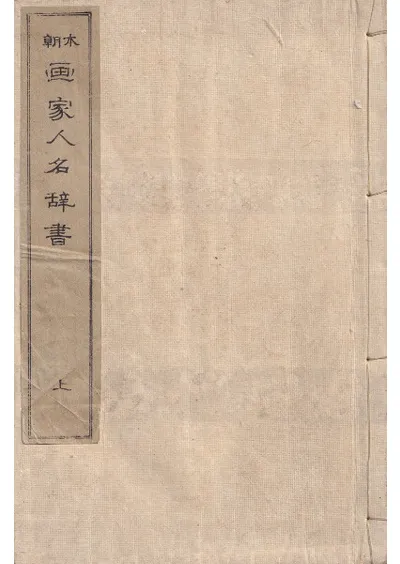 本朝
画家人名辞書
上